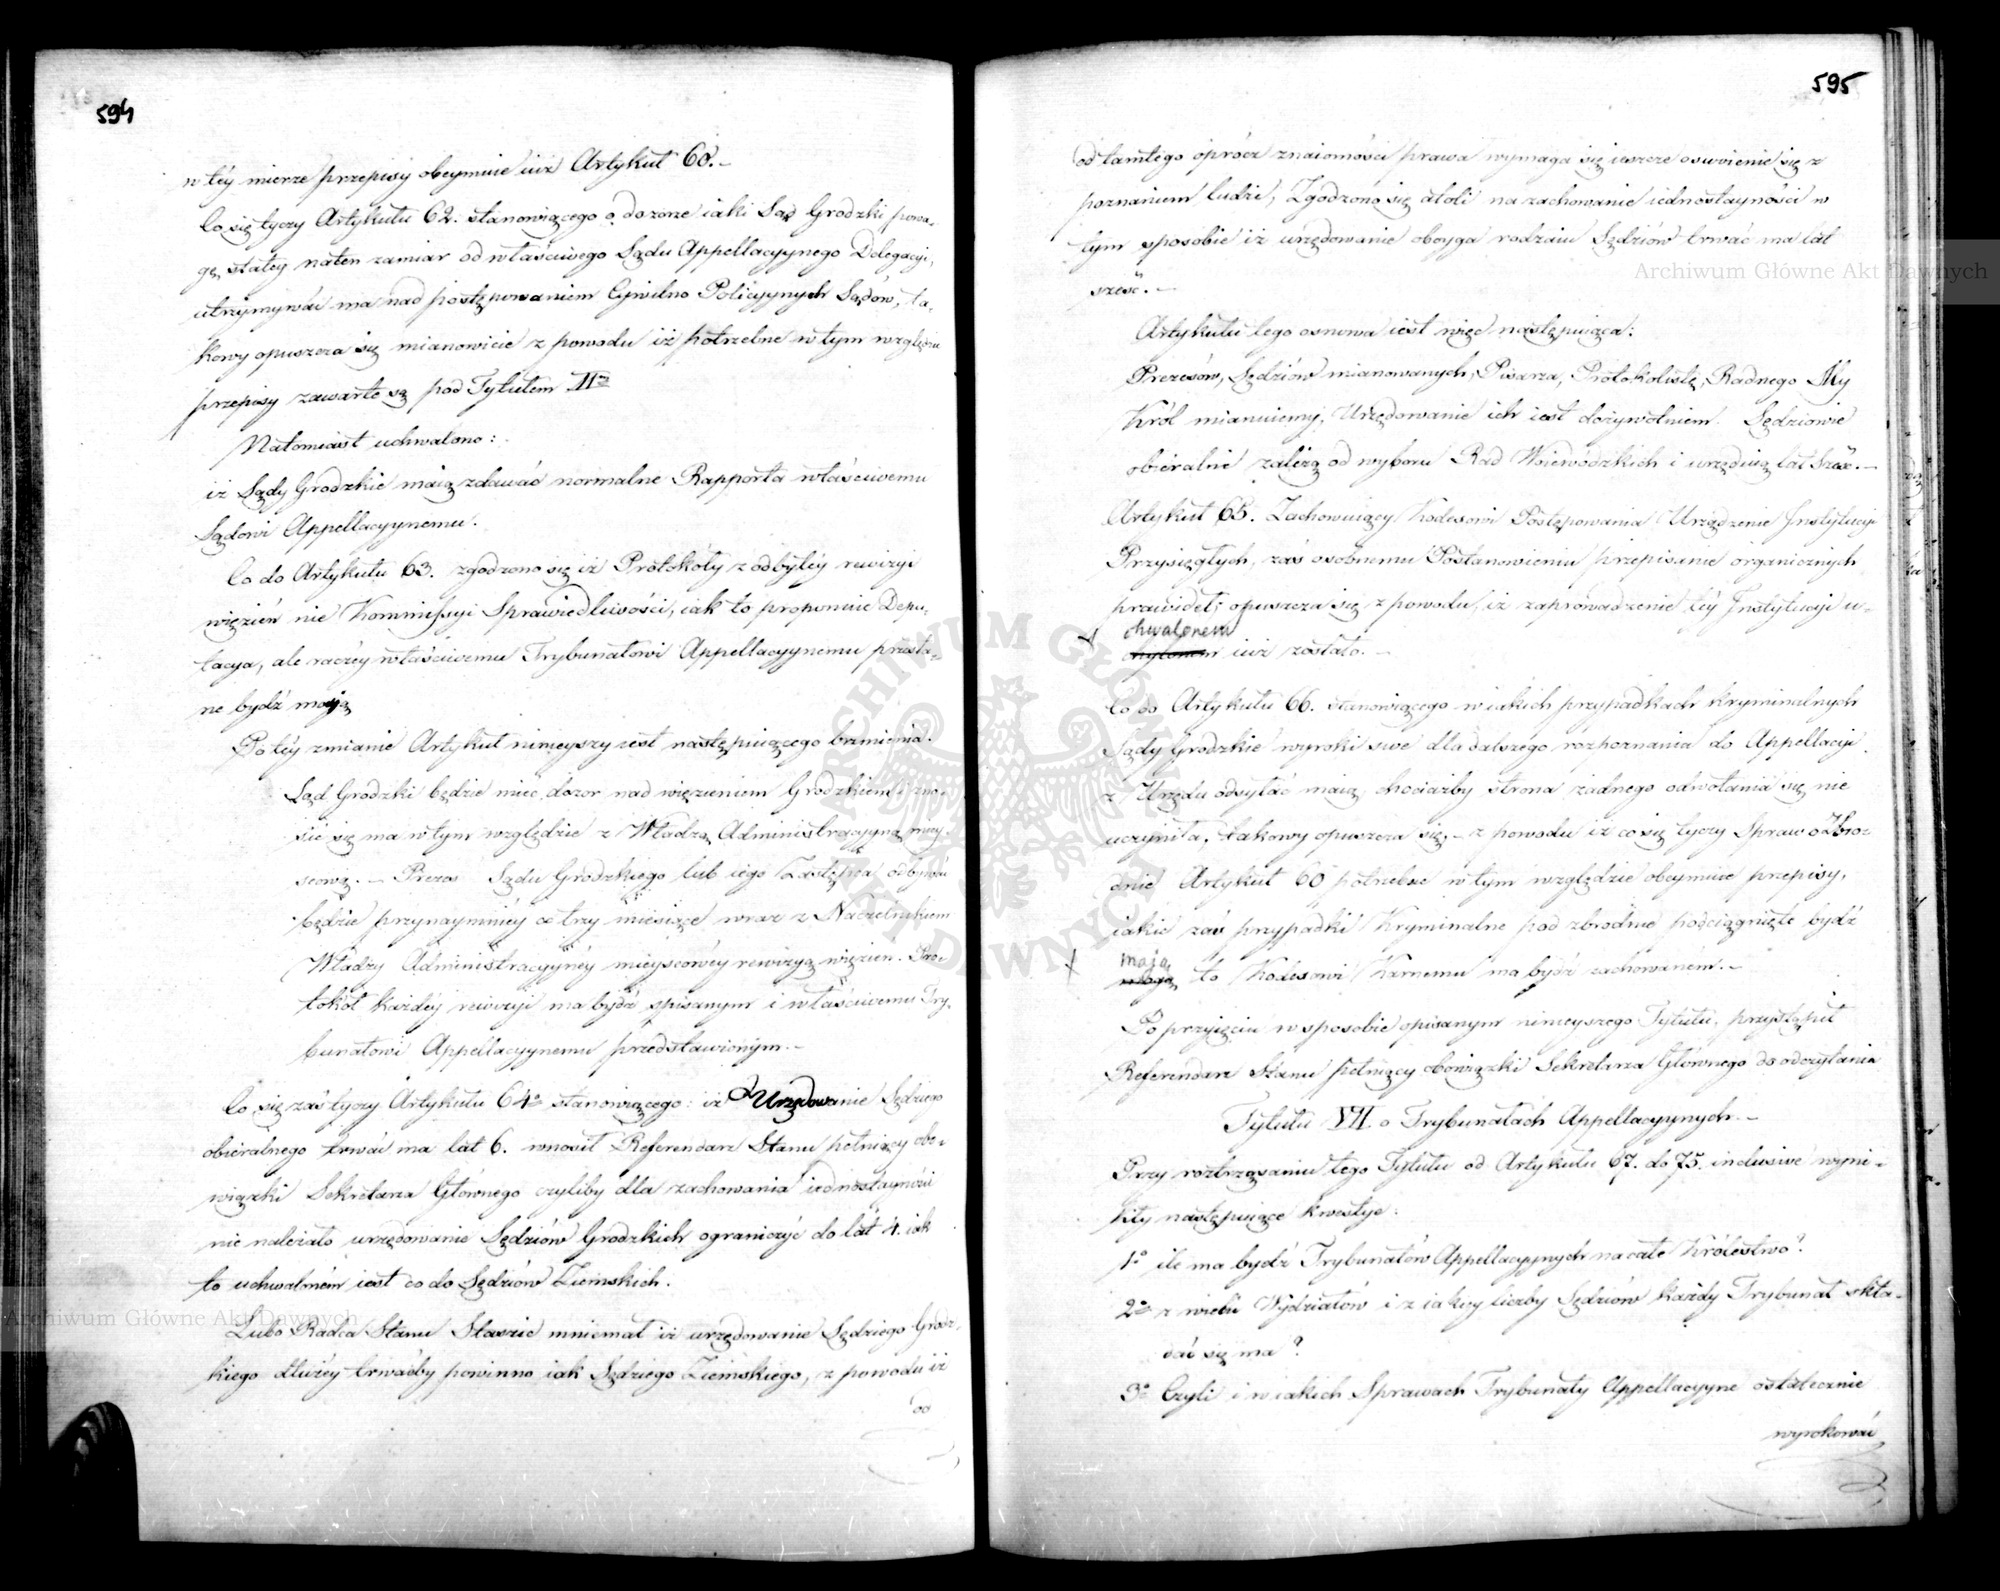 594
w téy mierze przepisy obeymuie iuż Artykuł 60. –
Co się tyczy Artykułu 62. stanowiącego o dozorze iaki Sąd Grodzki powa-
gę stałey na ten zamiar od właściwego Sądu Appellacyynego Delegacyi,
utrzymywać ma nad postępowaniem Cywilno Policyynych Sądów, ta-
kowy opuszcza się mianowicie z powodu iż potrzebne w tym względzie
przepisy zawarte są pod Tytułem II
Natomiast uchwalono:
iż Sądy Grodzkie maią zdawać normalne Rapporta właściwemu
Sądowi Appellacyynemu.
Co do Artykułu 63. zgodzono się iż Protokóły z odbytéy rewizyi
więzień nie Kommissyi Sprawiedliwości, iak to proponuie Depu-
tacya, ale raczéy właściwemu Trybunałowi Appellacyynemu przesła-
ne bydź mają
Po téy zmianie Artykuł ninieyszy iest następuiącego brzmienia.
Sąd Grodzki będzie mieć dozor nad więzieniem Grodzkiem i zno-
sić się ma w tym względzie z Władzą Administracyyną miey-
scową. – Prezes Sądu Grodzkiego lub iego Zastępca odbywać
będzie przynaymniéy co trzy miesiące wraz z Naczelnikiem
Władzy Administracyynéy mieyscowéy rewizyą więzień. Pro-
tokół każdéy rewizyi ma bydź spisanym i właściwemu Try-
bunałowi Appellacyynemu przedstawionym. –
Co się zaś tyczy Artykułu 64º stanowiącego: iż Urzędowanie Sędziego
obieralnego trwać ma lat 6. wnosił Referendarz Stanu pełniący obo-
wiązki Sekretarza Głównego czyliby dla zachowania iednostayności
nie należało urzędowanie Sędziów Grodzkich ograniczyć do lat 4. iak
to uchwalonem iest co do Sędziów Ziemskich.
Lubo Radca Stanu Staszic mniemał iż urzędowanie Sędziego Grodz-
kiego dłużéy trwaćby powinno iak Sędziego Ziemskiego, z powodu iż
od
595
od tamtego oprócz znaiomości prawa wymaga się ieszcze oswoienie się z
poznaniem ludzi; Zgodzono się atoli na zachowanie iednostayności w
tym sposobie iż urzędowanie oboyga rodzaiu Sędziów trwać ma lat
sześć. –
Artykułu tego osnowa iest więc następuiąca:
Prezesów, Sędziów mianowanych, Pisarza, Protokolistę, Radnego My
Król mianuiemy, Urzędowanie ich iest dożywotniem. Sędziowie
obieralni zależą od wyboru Rad Woiewódzkich i urzęduią lat sześć. –
Artykuł 65. Zachowuiący Kodexowi Postępowania Urządzenie Instytucyi
Przysięgłych, zaś osobnemu Postanowieniu przepisanie organicznych
prawideł; opuszcza się z powodu, iż zaprowadzenie téy Instytucyi u-
chwalonem
iuż zostało. –
Co do Artykułu 66. stanowiącego w iakich przypadkach kryminalnych
Sądy Grodzkie wyroki swe dla dalszego rozpoznania do Appellacyi
z Urzędu odsyłać maią, chociażby strona żadnego odwołania się nie
uczyniła, takowy opuszcza się, – z powodu iż co się tyczy Spraw o Zbro-
dnie Artykuł 60 potrzebne w tym względzie obeymuie przepisy,
iakie zaś przypadki Kryminalne pod zbrodnie podciągnięte bydź
mają
to Kodexowi Karnemu ma bydź zachowaném. –
Po przyięciu w sposobie opisanym ninieyszego Tytułu, przystąpił
Referendarz Stanu pełniący obowiązki Sekretarza Głównego do odczytania
Tytułu VII. o Trybunałach Appellacyynych. –
Przy roztrząsaniu tego Tytułu od Artykułu 67. do 75. inclusive wyni-
kły następuiące kwestye:
1º ile ma bydź Trybunałów Appellacyynych na całe Królestwo?
2º z wielu Wydziałów i z iakiey liczby Sędziów każdy Trybunał skła-
dać się ma?
3º Czyli i w iakich Sprawach Trybunały Appellacyyne ostatecznie
wyrokować
Archiwum Główne Akt Dawnych
Archiwum Główne Akt Dawnych
ARCHIWUM GŁÓWNE AKT DAWNYCH